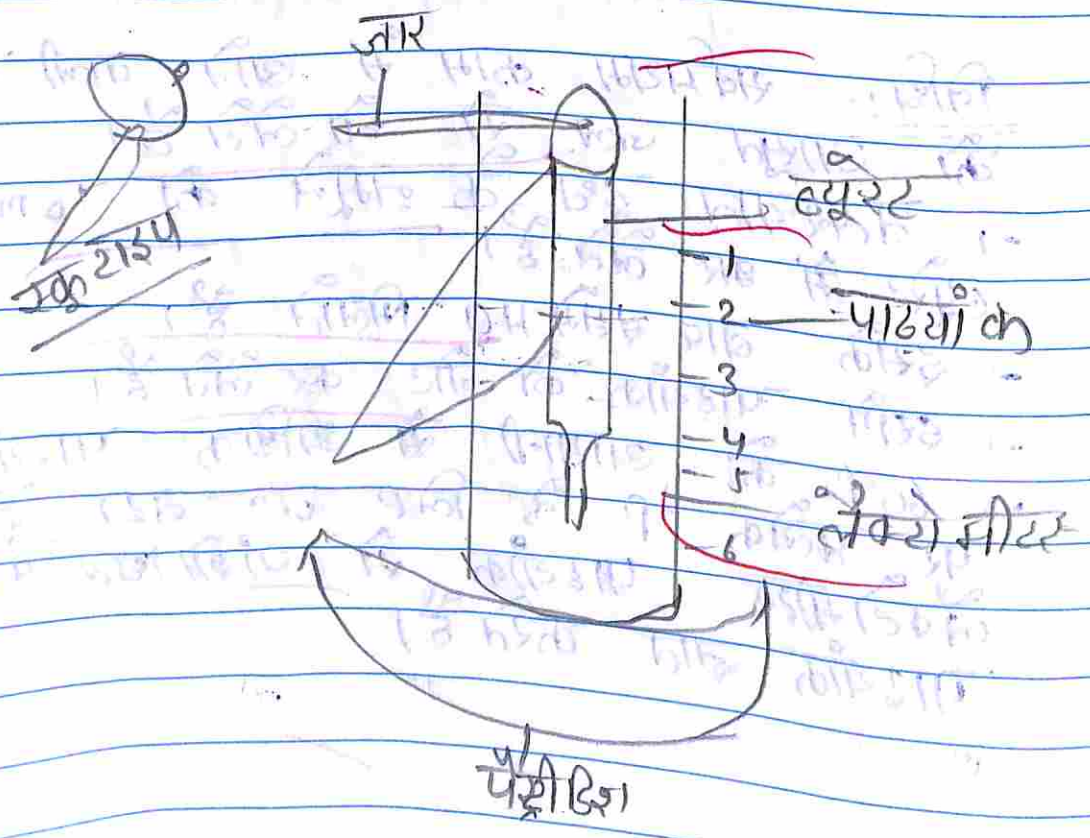 जार
ब्यूरेट
1
2 पाठ्यांक
3
4
5
लैक्टोमीटर
6
पैट्रीडिश